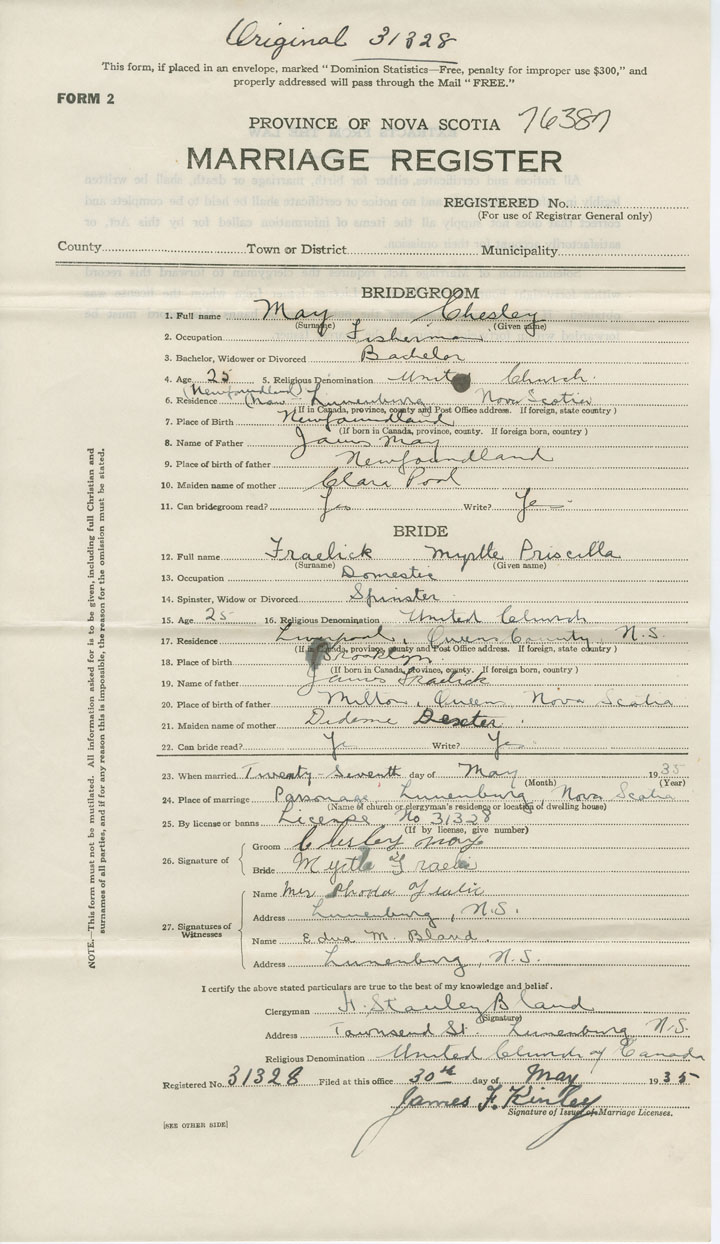 Original 31328
This form, if placed in an envelope, marked "Dominion Statistics—Free, penalty for improper use $300," and
properly addressed will pass through the Mail "FREE."
FORM 2
PROVINCE OF NOVA SCOTIA 76387
MARRIAGE REGISTER
REGISTERED No.
(For use of Registrar General only)
County Town or District Municipality
BRIDEGROOM
1. Full name May Chesley
(Surname) (Given name)
2. Occupation Fisherman
3. Bachelor, Widower or Divorced Bachelor
4. Age 25 5. Religious Denomination United Church.
(Newfoundland)
6. Residence (Now Lunenburg Nova Scotia
(If in Canada, province, county and Post Office address. If foreign, state country)
7. Place of Birth Newfoundland
(If born in Canada, province, county. If foreign born, country)
8. Name of Father James May
9. Place of birth of father Newfoundland
10. Maiden name of mother Clara Pool
11. Can bridegroom read? Yes Write? Yes
BRIDE
12. Full name Fraelick Myrtle Priscilla
(Surname) (Given name)
13. Occupation Domestic
14. Spinster, Widow or Divorced Spinster
15. Age 25 16. Religious Denomination United Church
17. Residence Liverpool, Queens County, N.S.
(If in Canada, province, county and Post Office address. If foreign, state country)
18. Place of birth Brooklyn
(If born in Canada, province, county. If foreign born, country)
19. Name of father James Fraelick
20. Place of birth of father Milton, Queens Nova Scotia
21. Maiden name of mother Dexter.
22. Can bride read? Yes Write? Yes
23. When married Twenty-Seventh day of May 1935
(Month) (Year)
24. Place of marriage Parsonage Lunenburg, Nova Scotia
(Name of church or clergyman's residence or location of dwelling house)
25. By license or banns License No 31328
(If by license, give number)
26. Signature of
Groom Chesley May
Bride Myrtle Fraelic
27. Signatures of Witnesses
Name Mrs Rhoda
Address Lunenburg, N.S.
Name Edna M. Bland.
Address Lunenburg, N.S.
I certify the above stated particulars are true to the best of my knowledge and belief.
Clergyman H. Stanley Bland
(Signature)
Address Townsend St. Lunenburg N.S.
Religious Denomination United Church of Canada
Registered No. 31328 Filed at this office 30th day of May 1935
James F. Kinley
Signature of Issuer of Marriage Licenses.
[SEE OTHER SIDE]
NOTE.—This form must not be mutilated. All information asked for is to be given, including full Christian and
surnames of all parties, and if for any reason this is impossible, the reason for the omission must be stated.